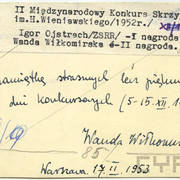 II Międzynarodowy Konkurs Skrzy
im.H.Wieniawskiego/1952r./
Igor Ojstrach/ZSRR/ -I nagroda
Wanda Wiłkomirska -II nagroda.
pamiątkę strasznych lecz piękn
dni konkursowych (5-15.XII
Wanda Wiłkomi
85
Warszawa 17. II 1953